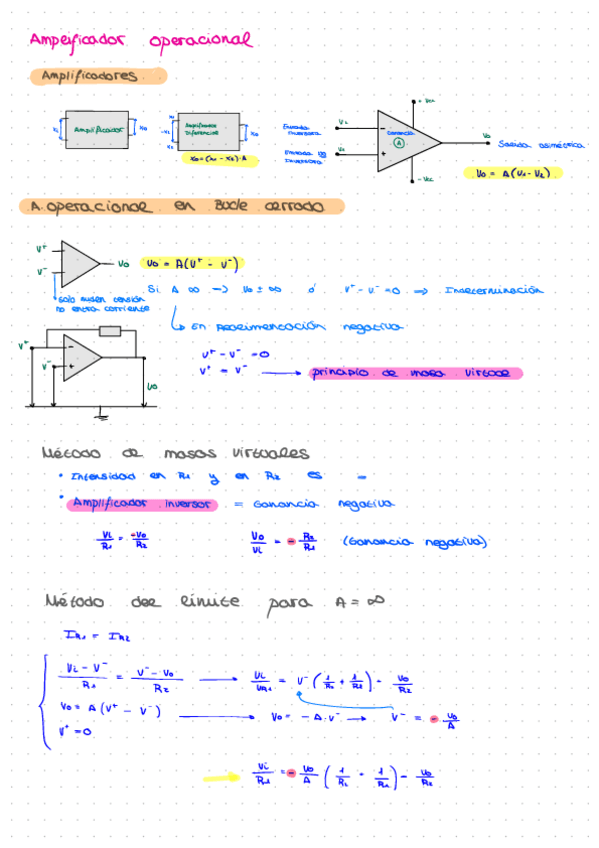 Amplificador operacional
Amplificadores
x1 Amplificador x0
x1 -x2 x2 Amplificador Diferencial x0
x0=(x1 - x2)·A
Entrada inversora V2
Entrada no inversora V1
+Vcc
Ganancia A
-Vcc
V0 Salida asimétrica
V0 = A(V1 - V2)
A. operacional en Bucle cerrado
V+
V-
V0
V0 = A(V+ - V-)
Si A ∞ → V0 ± ∞ ó V+ - V- = 0 ⇒ Indeterminación
Solo miden tensión
no entra corriente
En Realimentación negativa
V+
V-
V0
V+ - V- = 0
V+ = V- → principio de masa virtual
Método de masas virtuales
• Intensidad en R1 y en R2 es =
• Amplificador inversor = Ganancia negativa
Vi/R1 = -V0/R2 V0/Vi = - R2/R1 (Ganancia negativa)
Método del límite para A = ∞
IR1 = IR2
Vi - V-/R1 = V- - V0/R2 → Vi/VR1 = V- (1/R2 + 1/R1) - V0/R2
V0 = A (V+ - V-) → V0 = - A · V- → V- = - V0/A
V+ = 0
→ Vi/R1 = - V0/A (1/R2 + 1/R1) - V0/R2